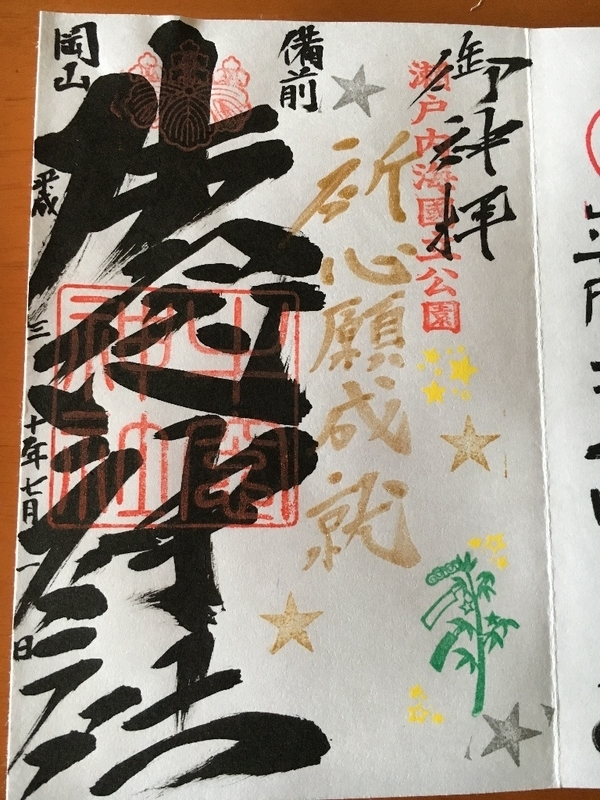 御神拝
瀬戸内海國立公園
祈心願成就
備前
牛窓神社
牛窓
神社
岡山
平成三十年七月一日